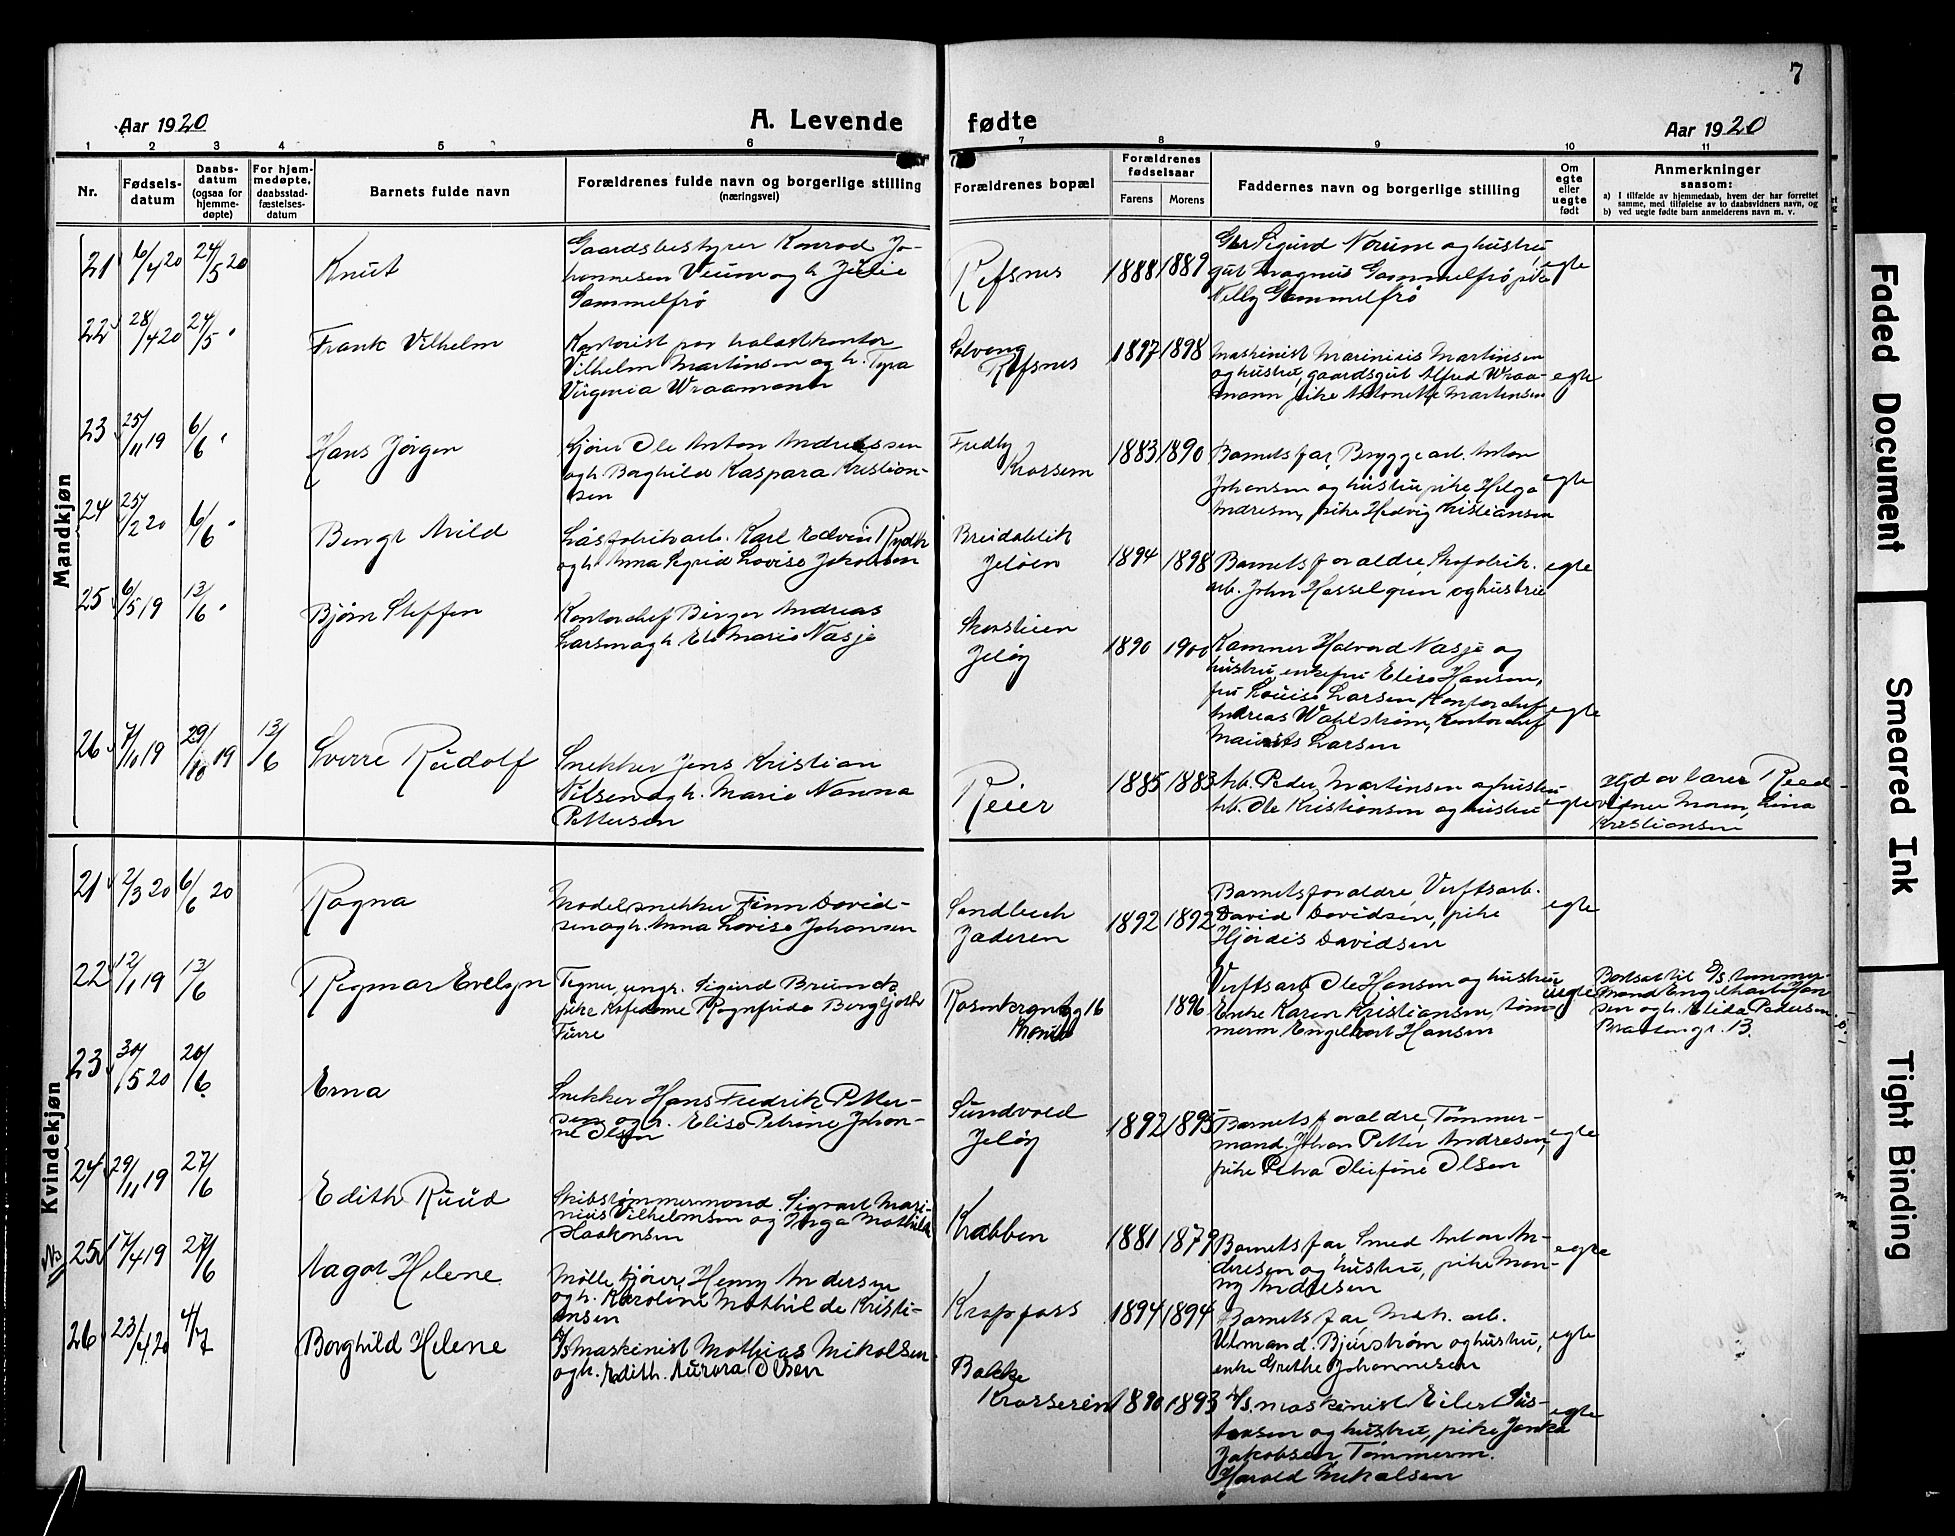 7
Aar 1920
A. Levende fødte
Aar 1920
1 2 3 4 5 6 7 8 9 10 11
Nr.
Fødsels-
datum
Daabs-
datum
(ogsaa for
hjemme-
døpte)
For hjem-
medøpte,
daabsstad-
fæstelses-
datum
Barnets fulde navn
Forældrenes fulde navn og borgerlige stilling
(næringsvei)
Forældrenes bopæl
Forældrenes
fødselsaar
Farens Morens
Faddernes navn og borgerlige stilling
Om
egte
eller
uegte
født
Anmerkninger
saasom:
a) I tilfælde av hjemmedaab, hvem der har forrettet
samme, med tilføielse av to daabsvidners navn, og
b) ved uegte fødte barn anmelderens navn m. v.
Mandkjøn
21 6/4 20 24/5 20
Knut
Gaardsbestyrer Konrad Jo-
hannesen Veum og h. Julie
Gammelfrø
Refsnes
1888 1889
Gbr Sigurd Norum og hustru,
gut Magnus Gammelfrø, pike
Nelly Gammelfrø
egte
22 28/4 20 24/5 "
Frank Vilhelm
Kontorist paa
Vilhelm Martinsen og h. Tyra
Virginia Wraamann
Solveng
Refsnes
1897 1898
Maskinist Marinius Martinsen
og hustru, gaardsgut Alfred Wraa-
mann, pike Antonette Martinsen
egte
23 25/11 19 6/6 "
Hans Jørgen
Kjører Ole Anton Andreassen
og h. Borghild Kaspara Kristian-
sen
Fredly
Krossern
1883 1890
Barnets far, Bryggearb. Anton
Johansen og hustru, pike Helga
Andresen, pike Hedvig Kristiansen
egte
24 25/2 20 6/6 "
Bengt Arild
Låsfabrikarb. Karl Edvin Rydh
og h. Anna Sigrid Lovise Jakobsen
Breidablik
Jeløen
1894 1898
Barnets foraldre, Skofabrik-
arb. John Hasselgren og hustru
egte
25 6/5 19 13/6 "
Bjørn Steffen
Kontorchef Birger Andreas
Larsen og h. Else Marie Nasje
Jeløy
1890 1900
Kamner Halvard Nasje og
hustru, enkefru Elise Hansen,
fru Louise Larsen, Kontorchef
Andreas Wahlstrøm, Kontorchef
Larsen
egte
26 7/10 19 29/10 19 13/6
Sverre Rudolf
Snekker Jens Kristian
Nilsen og h. Marie Nanna
Pettersen
Reier
1885 1883
Arb. Peder Martinsen og hustru
Arb. Ole Kristiansen og hustru
egte
Hjd av lærer Reed
vidner Moren, Lina
Kristiansen
Kvindekjøn
21 2/3 20 6/6 20
Ragna
Modelsnekker Finn David-
sen og h. Anna Lovise Johansen
Sandbech
Jaderen
1892 1892
Barnets foraldre, Verftsarb.
David Davidsen, pike
Hjørdis Davidsen
egte
22 12/1 19 13/6
Ragmar Evelyn
Tegner, ungk. Sigurd Brun &
pike Kafedame Ragnfrida Bergljot
Furre
Rosenkrantzg 16
1896
Verftsarb. Ole Hansen og hustru
Enke Karen Kristiansen, tøm-
merm Engelhart Hansen
uegte
Bortsat til tømmer-
mand Engelhart Han-
sen og h. Elida Pedersen
Braatengt. 13.
23 30/5 20 20/6
Erna
Snekker Hans Fredrik Petter-
sen og h. Elise Petrine Johan-
ne Olsen
Sundvold
Jeløy
1892 1895
Barnets foraldre, Tømmer-
mand Johan Petter Andresen,
pike Petra Olefine Olsen
egte
24 29/11 19 27/6
Edith Ruud
Skibstømmermand Sigvart Mari-
nius Vilhelmsen og Inga Mathilde
Haakonsen
Krabben
1881 1879
Barnets far, Smed Anton An-
dresen og hustru, pike Man-
ny Andresen
egte
25 17/4 19 27/6
Aagot Helene
Møllekjører Henry Andersen
og h. Karoline Mathilde Kristi-
ansen
Krapfoss
1894 1894
Barnets far, Mek. arb.
Utmand Bjurstrøm og hustru,
enke Grethe Johannesen
egte
26 23/4 20 4/7
Borghild Helene
D/S maskinist Mathias Mikalsen
og h. Edith Aurora Olsen
Bakke
Krosseren
1890 1893
D/S. maskinist Eilert Gus-
tavsen og hustru, pike Jenka
Jakobsen, Tømmerm.
Harald Mikalsen
egte
Faded Document
Smeared Ink
Tight Binding